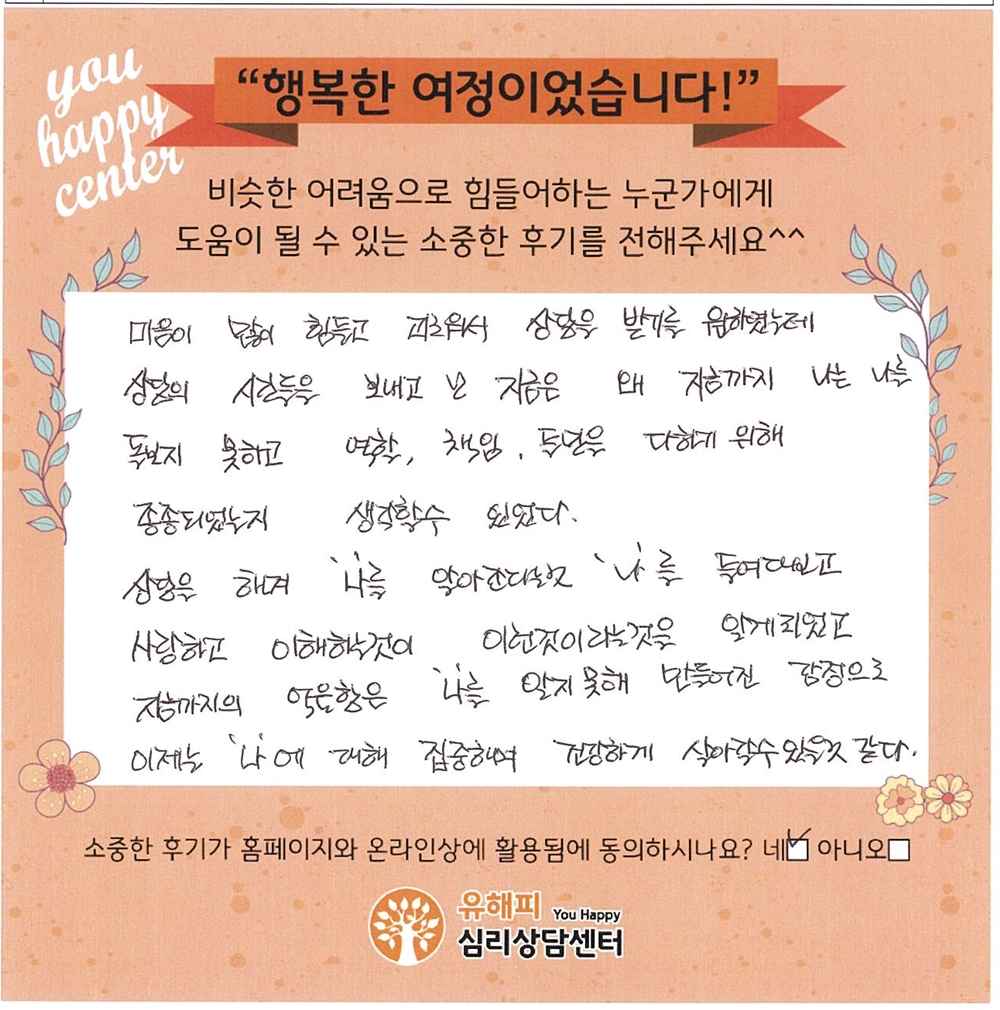 you
happy
center
“행복한 여정이었습니다!”
비슷한 어려움으로 힘들어하는 누군가에게
도움이 될 수 있는 소중한 후기를 전해주세요^^
마음이 많이 힘들고 괴로워서 상담을 받기를 원하였는데
상담의 시간들을 보내고 난 지금은 왜 지금까지 나는 나를
돌보지 못하고 역할, 책임, 두면을 다하기 위해
종종되었는지 생각할수 있었다.
상담을 해서 '나'를 알아간다는것 '나'를 들여다보고
사랑하고 이해하는것이 이런것이라는것을 알게되었고
지금까지의 억울함은 '나'를 알지못해 만들어진 감정으로
이제는 '나'에 대해 집중하여 건강하게 살아갈수있을것 같다.
소중한 후기가 홈페이지와 온라인상에 활용됨에 동의하시나요? 네☑ 아니오☐
유해피 You Happy
심리상담센터